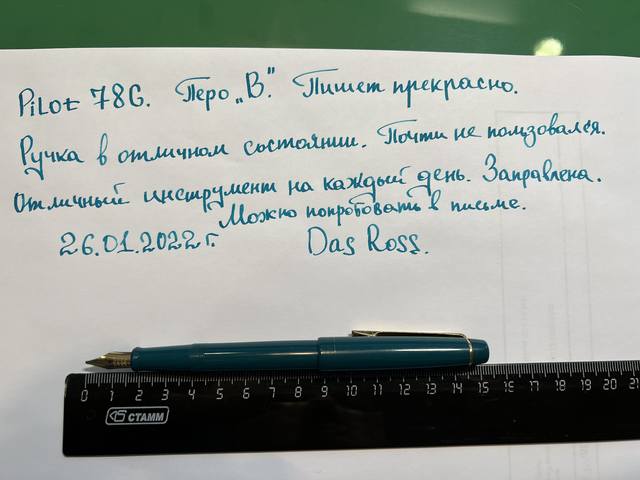 Pilot 78G. Перо „В". Пишет прекрасно.
Ручка в отличном состоянии. Почти не пользовался.
Отличный инструмент на каждый день. Заправлена.
Можно попробовать в письме.
26.01.2022 г. Das Ross.
0 1 2 3 4 5 6 7 8 9 10 11 12 13 14 15 16 17 18 19 20 21
СТАММ